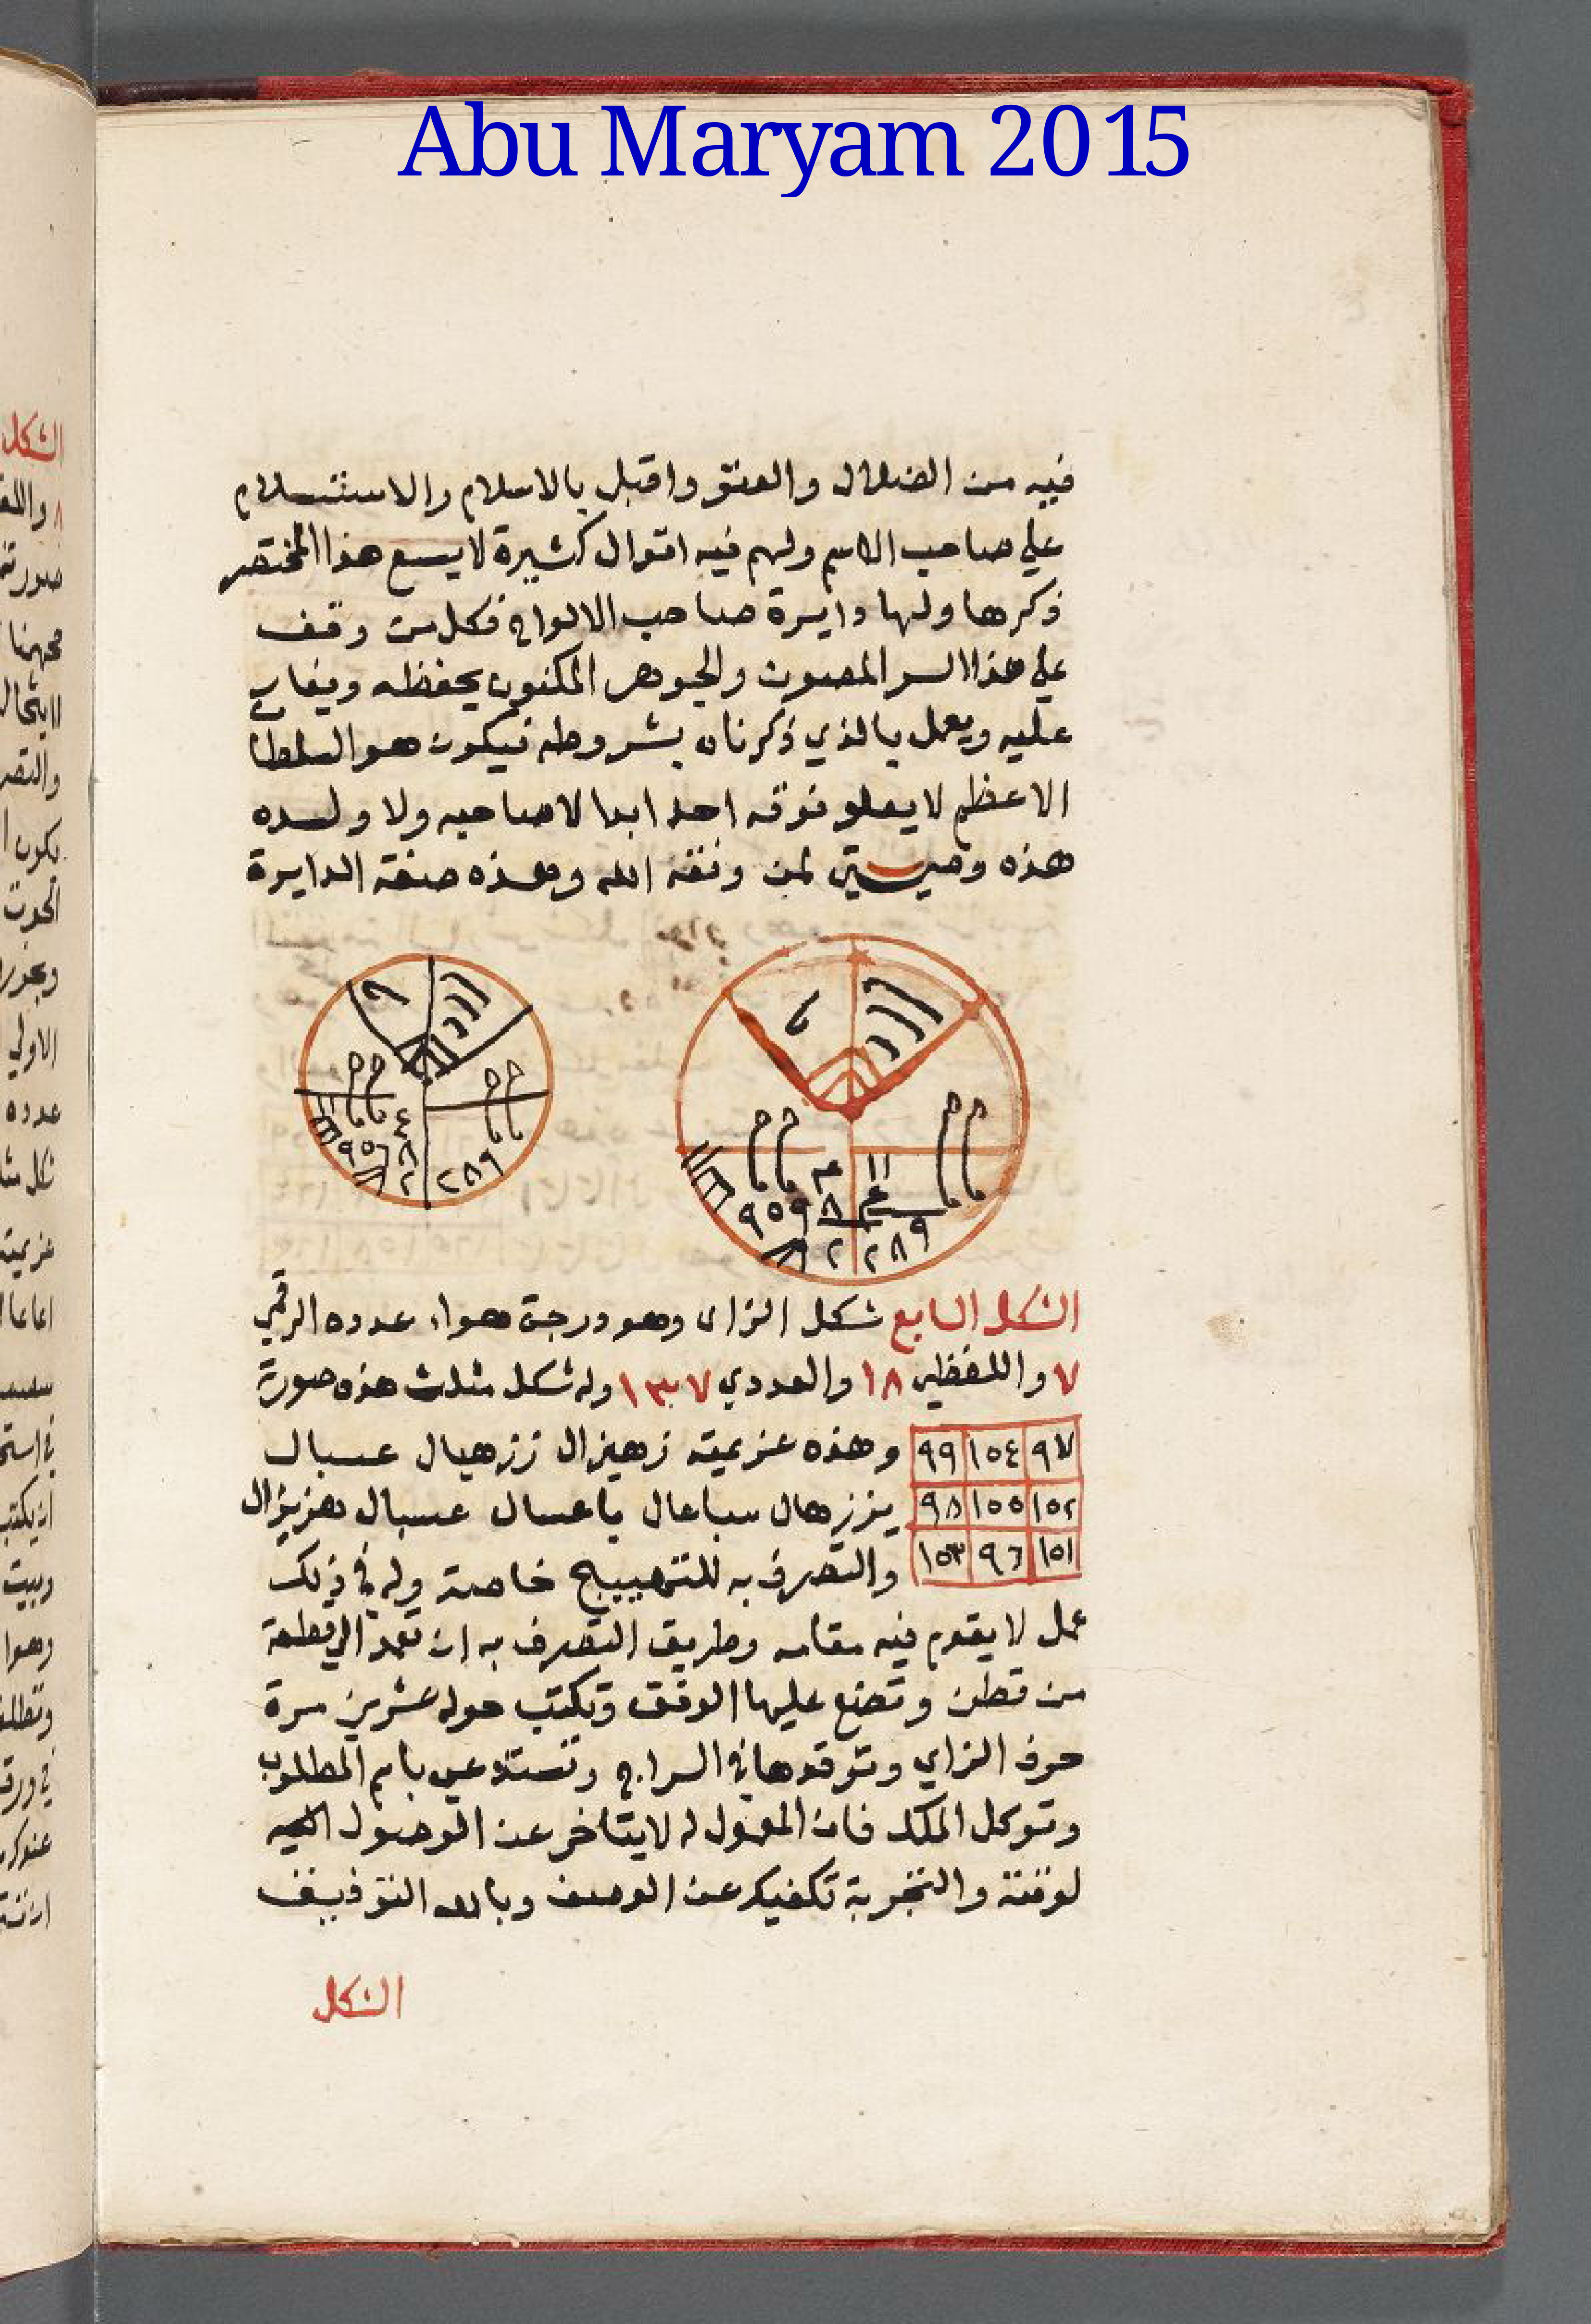 Abu Maryam 2015
فيه من الضلال والعتو واقبل بالاسلام والاستسلام
علي صاحب الاسم ولهم فيه اقوال كثيرة لا يسع هذا المختصر
ذكرها ولها دايرة صاحب الالواح فكل من وقف
علي هذا السر المصون والجوهر المكنون يحفظه ويغار
عليه ويعمل بالذي ذكرناه بشروطه فيكون هو السلطان
الاعظم لا يعلو فوقه احد ابدا لا صاحبه ولا ولده
هذه وصيتي لمن وفقه الله وهذه صفة الدايرة
الشكل السابع شكل الزاى وهو درجة هواء عدده الرقمي
٧ واللفظي ١٨ والعددي ١٣٧ وله شكل مثلث هذه صورته
٩٧ ١٥٤ ٩٩ وهذه عزيمته زهيزال ززهيال عسبال
١٥٢ ١٥٥ ٩٨ يززهال سباعال ياعسال عسبال هزيزال
١٥١ ٩٦ ١٥٣ والتصرف به للتهييج خاصة وله في ذلك
عمل لا يقوم فيه مقامه وطريق التصرف به ان تعمد الي قطعة
من قطن وتضع عليها الوفق وتكتب حوله عشرين مرة
حرف الزاي وتوقدها في السراج وتستدعي باسم المطلوب
وتوكل الملك فان المعمول له لا يتاخر عن الوصول اليه
لوقته والتجربة تكفيك عن الوصف وبالله التوفيق
الشكل